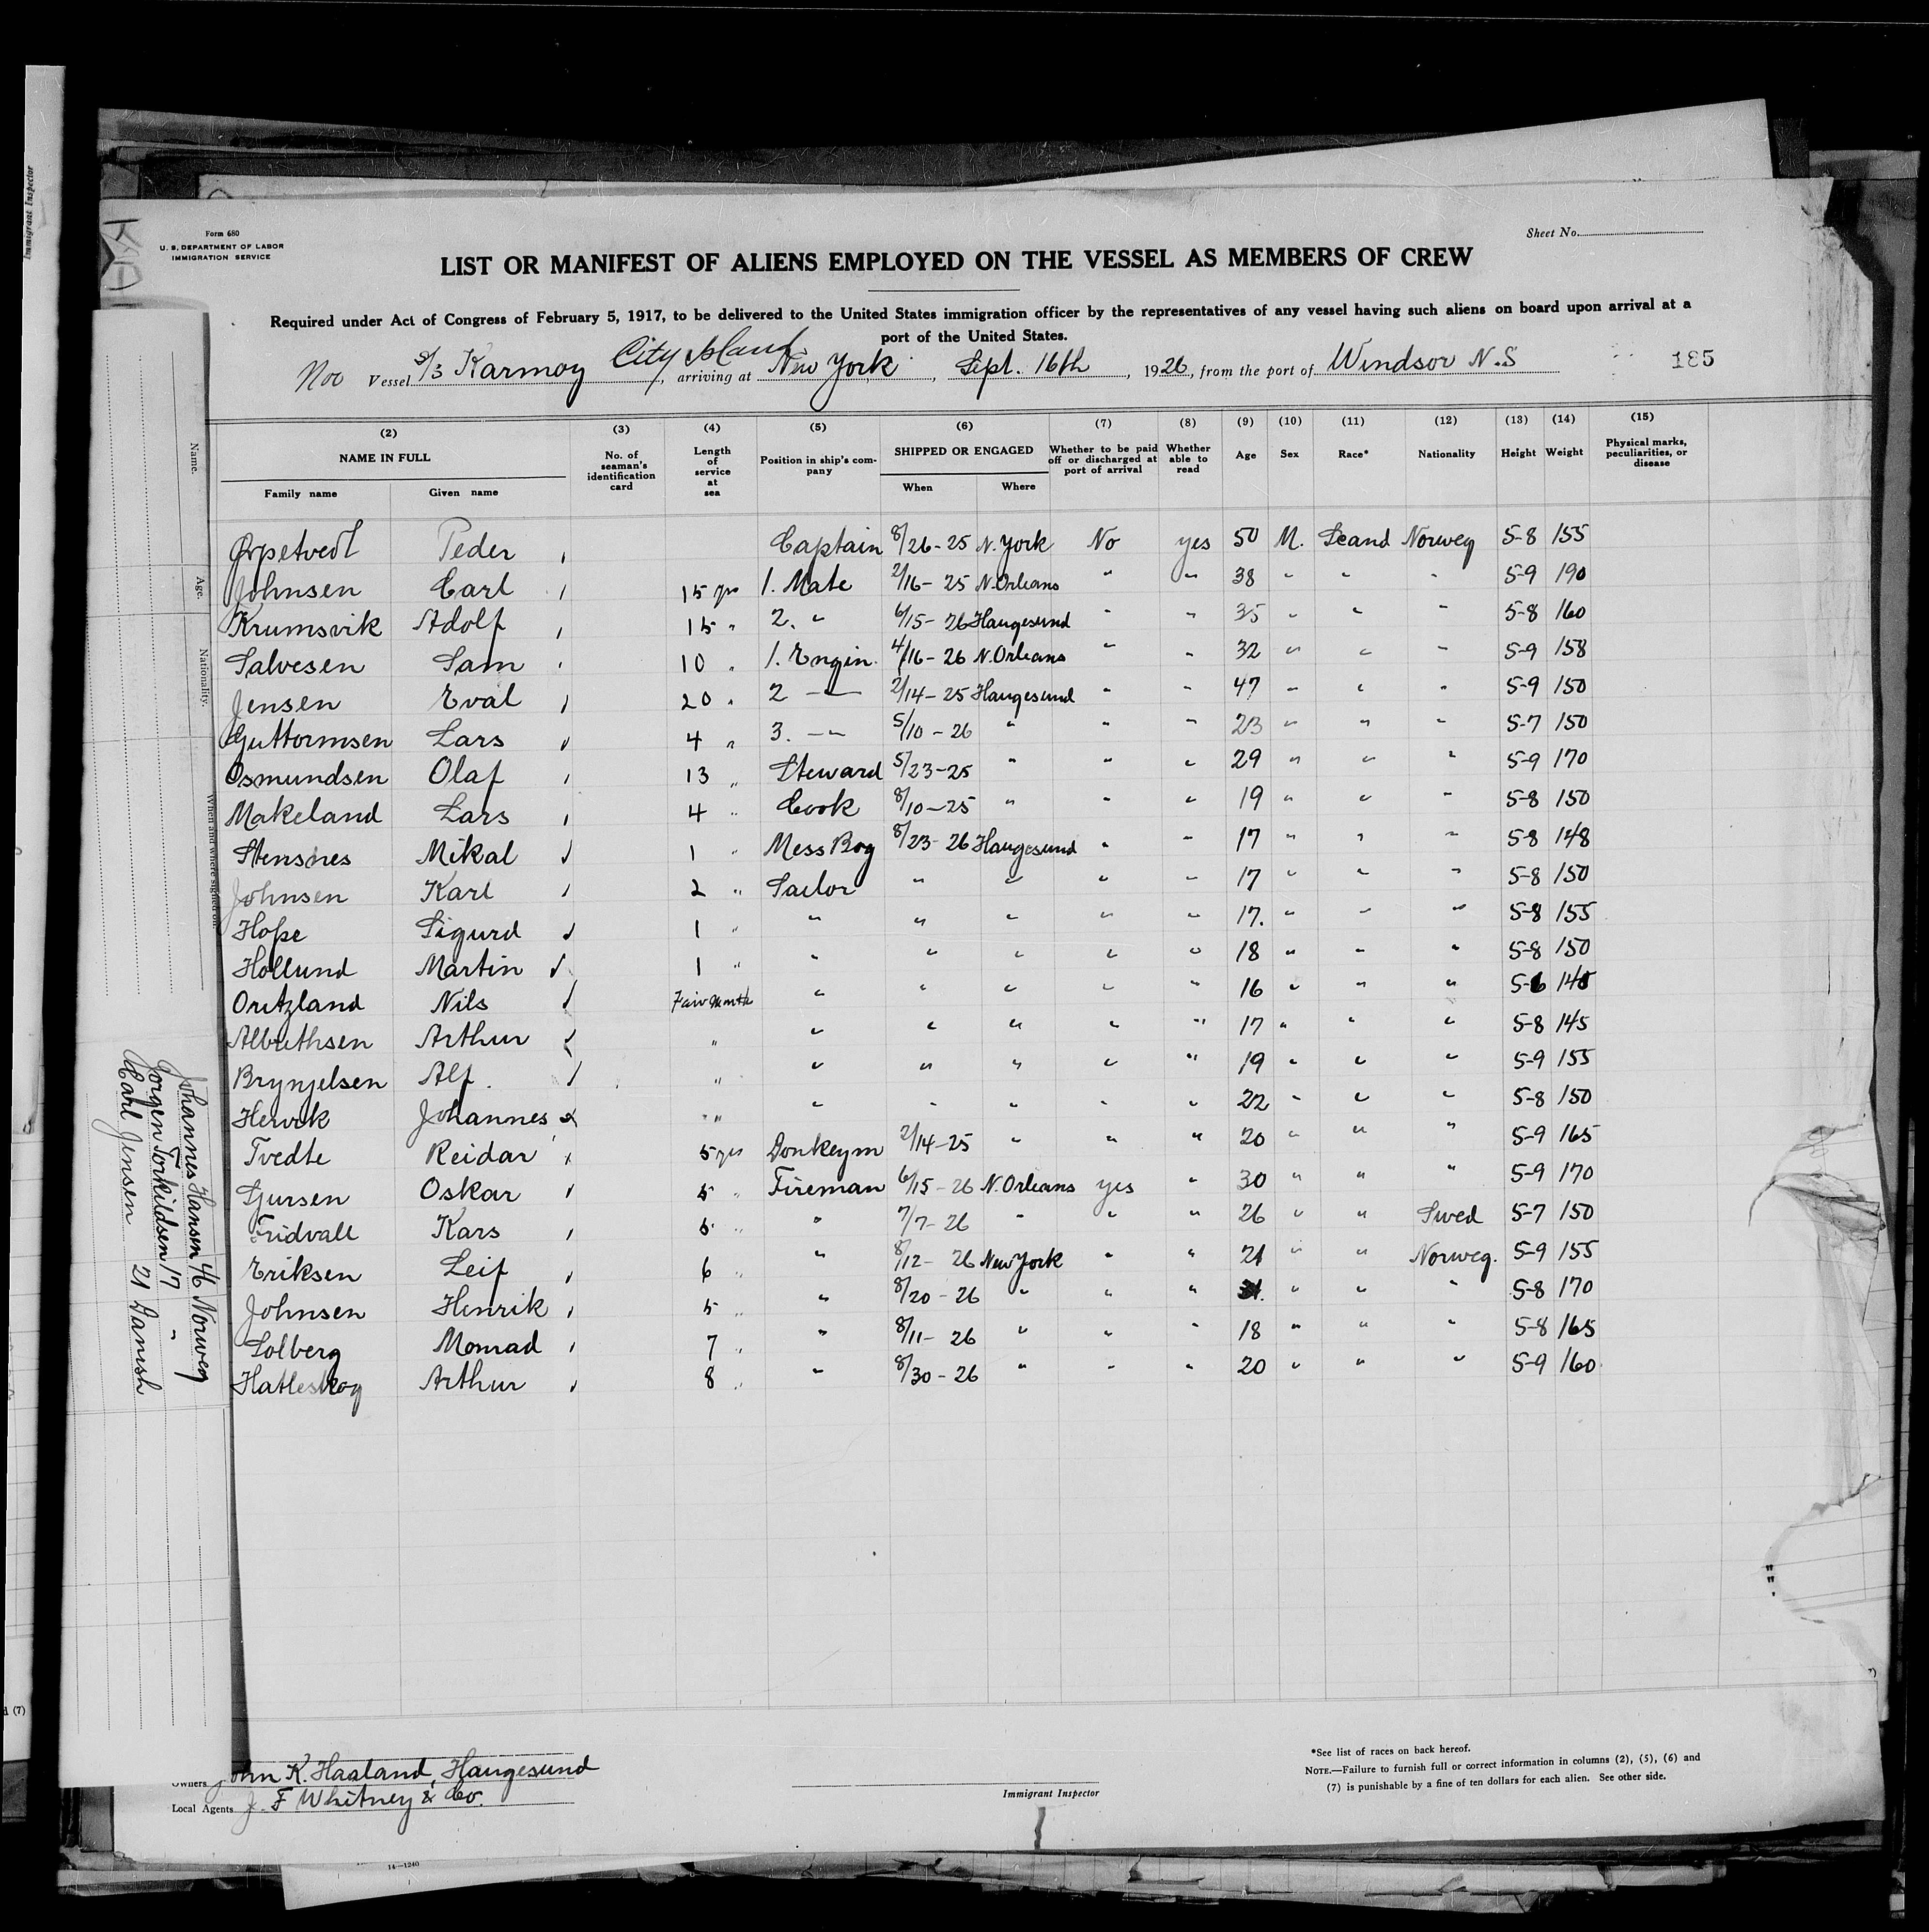 Form 680
U. S. DEPARTMENT OF LABOR
IMMIGRATION SERVICE
Sheet No.
LIST OR MANIFEST OF ALIENS EMPLOYED ON THE VESSEL AS MEMBERS OF CREW
Required under Act of Congress of February 5, 1917, to be delivered to the United States immigration officer by the representatives of any vessel having such aliens on board upon arrival at a
port of the United States.
City Island
Nor Vessel S/S Karmoy, arriving at New York, Sept. 16th, 1926, from the port of Windsor N.S 185
(2) (3) (4) (5) (6) (7) (8) (9) (10) (11) (12) (13) (14) (15)
NAME IN FULL No. of seaman's identification card Length of service at sea Position in ship's company SHIPPED OR ENGAGED Whether to be paid off or discharged at port of arrival Whether able to read Age Sex Race* Nationality Height Weight Physical marks, peculiarities, or disease
Family name Given name When Where
Ørpetvedt Peder Captain 8/26-25 N. York No yes 50 M. Scand Norweg 5-8 155
Johnsen Carl 15 yrs 1. Mate 2/16-25 N. Orleans " " 38 " " " 5-9 190
Krumsvik Adolf 15 " 2. " 6/15-26 Haugesund " " 35 " " " 5-8 160
Salvesen Sam 10 " 1. Engin. 4/16-26 N. Orleans " " 32 " " " 5-9 158
Jensen Eval 20 " 2 — 2/14-25 Haugesund " " 47 " " " 5-9 150
Guttormsen Lars 4 " 3. —"— 5/10-26 " " " 23 " " " 5-7 150
Osmundsen Olaf 13 " Steward 5/23-25 " " " 29 " " " 5-9 170
Makeland Lars 4 " Cook 8/10-25 " " " 19 " " " 5-8 150
Stensnes Mikal 1 " Mess Boy 8/23-26 Haugesund " " 17 " " " 5-8 148
Johnsen Karl 2 " Sailor " " " " 17 " " " 5-8 150
Hope Sigurd 1 " " " " " " 17. " " " 5-8 155
Hollund Martin 1 " " " " " " 18 " " " 5-8 150
Nils " " " " " 16 " " " 5-6
Arthur " " " " " " 17 " " " 5-8 145
Brynjelsen Alf. " " " " " " 19 " " " 5-9 155
Hervik Johannes " " " " " " 22 " " " 5-8 150
Tvedte Reidar 5 yrs Donkeym 2/14-25 " " " 20 " " " 5-9 165
Oskar 5 " Fireman 6/15-26 N. Orleans yes " 30 " " " 5-9 170
Fridvall Kars 5 " " 7/7-26 " " " 26 " " Swed 5-7 150
Eriksen Leif 6 " " 8/12-26 New York " " 21 " " Norweg. 5-9 155
Johnsen Henrik 5 " " 8/20-26 " " " " " " 5-8 170
Solberg Monrad 7 " " 8/11-26 " " " 18 " " " 5-8 165
Hatleskog Arthur 8 " " 8/30-26 " " " 20 " " " 5-9 160
Name.
Age.
Nationality.
When and where signed on.
Johannes Hansen 46 Norweg
Jorgen Torkildsen 17 "
Carl Jensen 21 Danish
Immigrant Inspector
d (7)
Owners John K. Haaland, Haugesund
Local Agents J. F Whitney & Co.
Immigrant Inspector
*See list of races on back hereof.
NOTE.—Failure to furnish full or correct information in columns (2), (5), (6) and
(7) is punishable by a fine of ten dollars for each alien. See other side.
14—1240